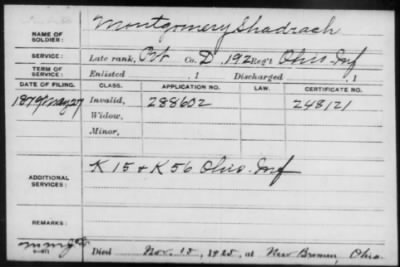 NAME OF SOLDIER: Montgomery Shadrach
SERVICE: Late rank, Pvt Co. D, 192 Reg't Ohio Inf
TERM OF SERVICE: Enlisted , 1 Discharged , 1
DATE OF FILING. CLASS. APPLICATION NO. LAW. CERTIFICATE NO.
1879 May 27 Invalid, 288602 248121
Widow,
Minor,
ADDITIONAL SERVICES: K 15 + K 56 Ohio Inf
REMARKS:
6—071
Died Nov. 15, 1925, at New Bremen, Ohio.